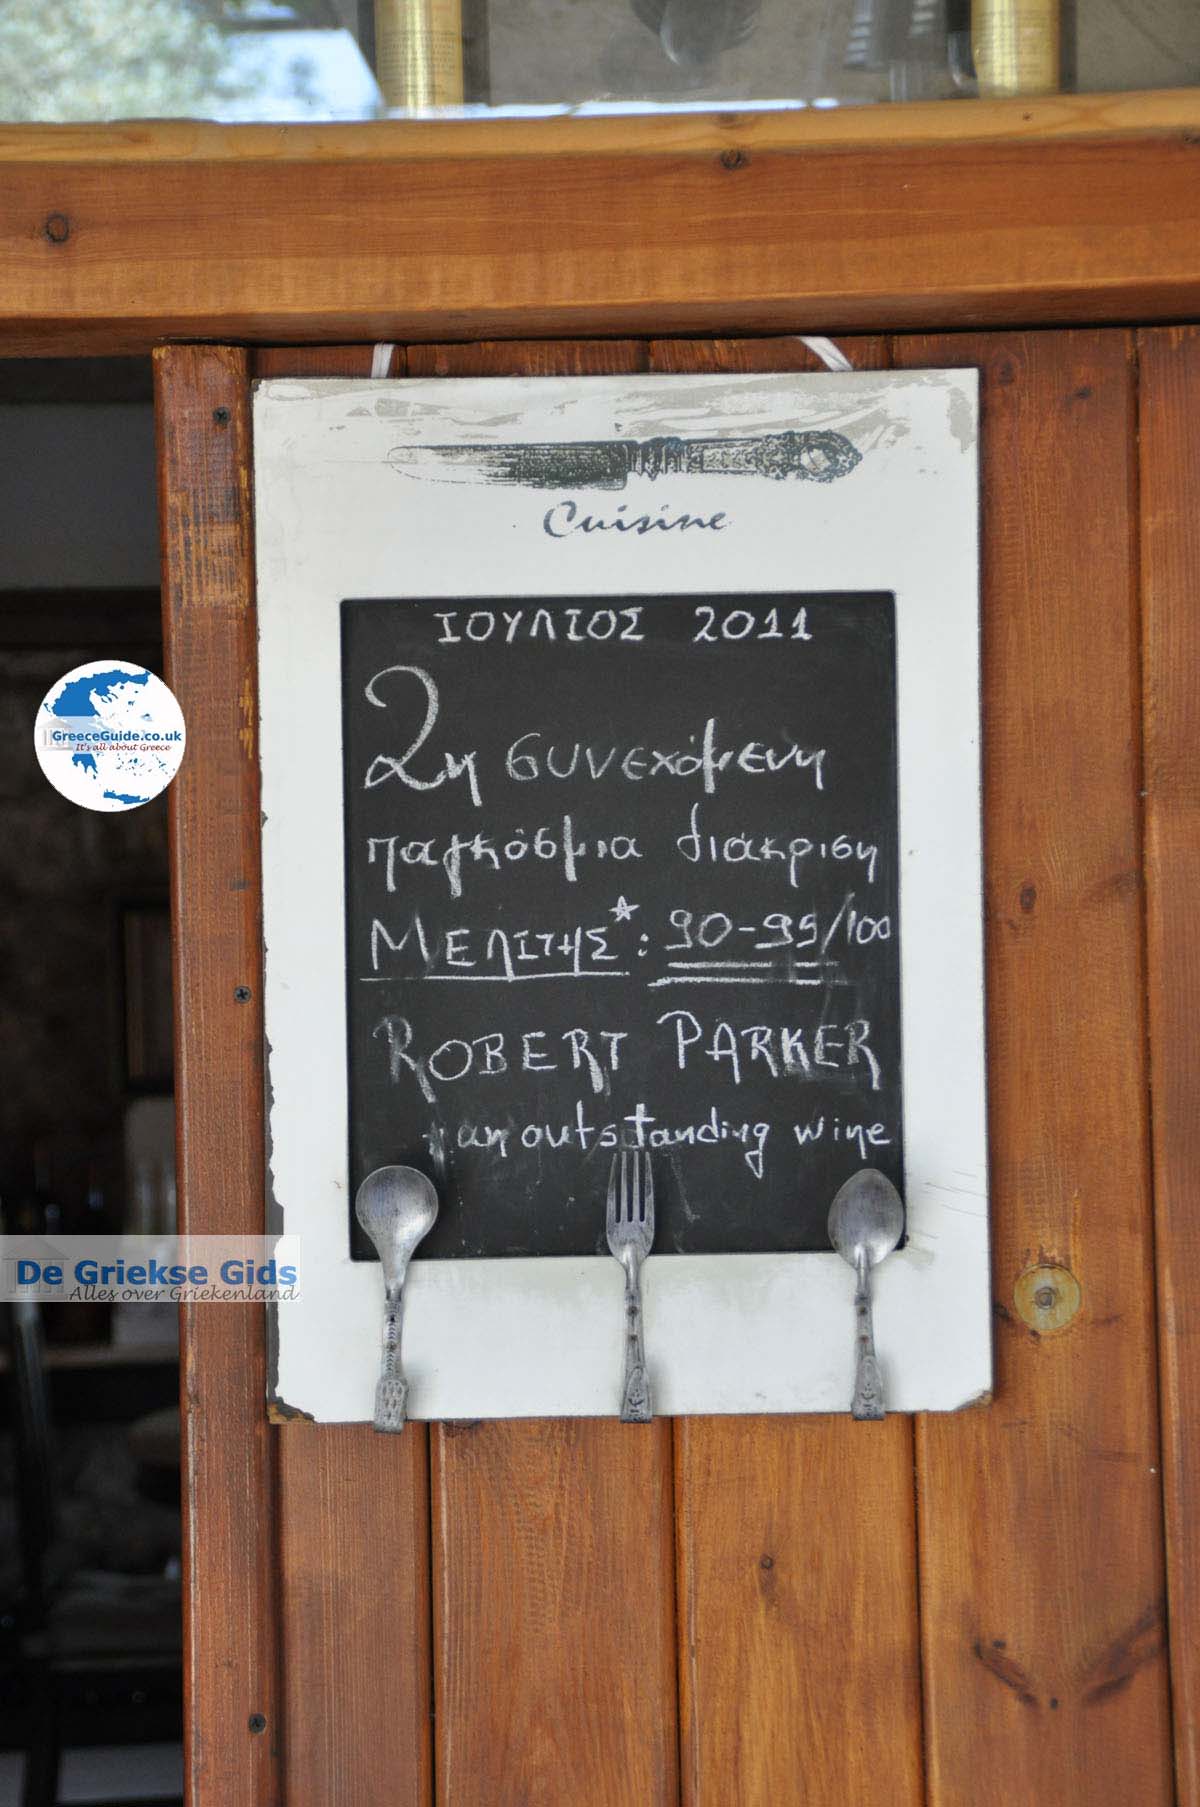 Cuisine
ΙΟΥΛΙΟΣ 2011
2η συνεχόμενη
παγκόσμια διάκριση
ΜΕΛΙΤΗΣ*: 90-95/100
ROBERT PARKER
an outstanding wine
GreeceGuide.co.uk
It's all about Greece
De Griekse Gids
Alles over Griekenland